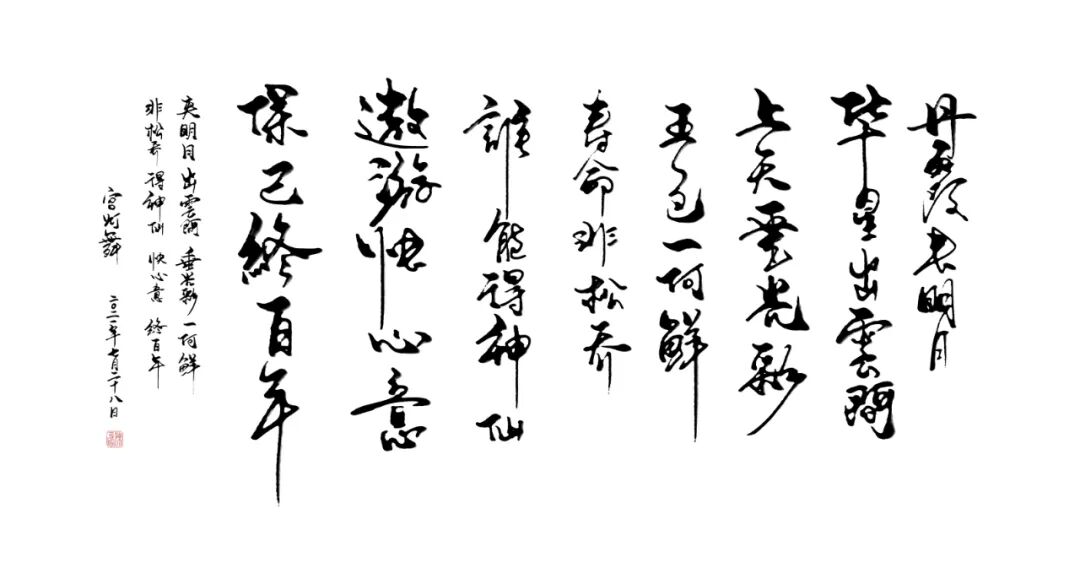 丹霞夹明月
華星出雲間
上天垂光彩
五色一何鮮
寿命非松乔
誰能得神仙
遨游快心意
保己終百年
夹明月 出雲間 垂光彩 一何鮮
非松乔 得神仙 快心意 終百年
宫灯舞 二〇二一年七月二十八日